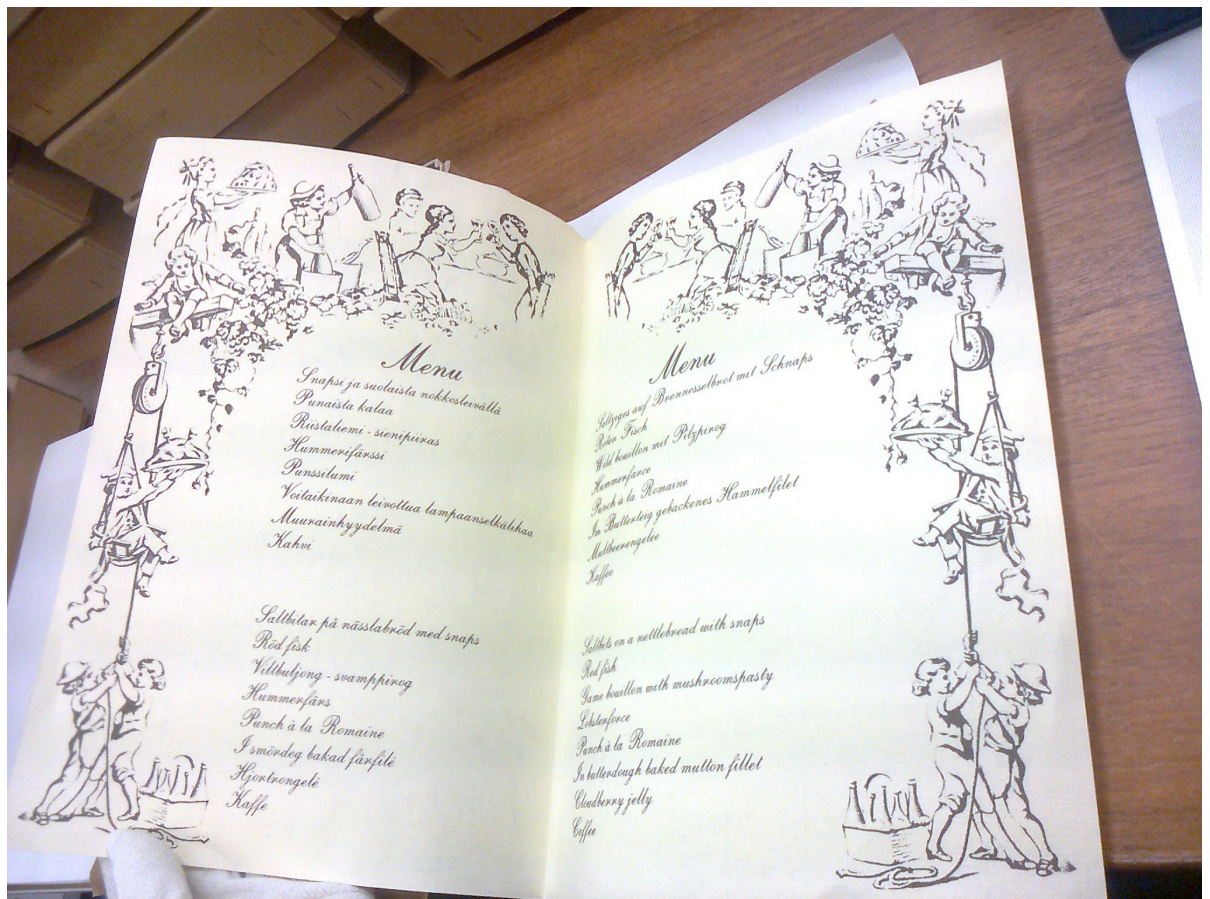 Menu
Snapsi ja suolaista nokkosleivällä
Punaista kalaa
Riistaliemi - sienipiiras
Hummerifärssi
Punssilumi
Voitaikinaan leivottua lampaanselkälihaa
Muurainhyydelmä
Kahvi
Saltbitar på nässlabröd med snaps
Röd fisk
Viltbuljong - svamppirog
Hummerfärs
Punch à la Romaine
I smördeg bakad fårfilé
Hjortrongelé
Kaffe
Menu
Saltzoges auf Brennesselbrot mit Schnaps
Roter Fisch
Wild bouillon mit Pilzpirog
Hummerfarce
Punch à la Romaine
Im Butterteig gebackenes Hammelfilet
Multbeerengelée
Kaffee
Saltbits on a nettlebread with snaps
Red fish
Game bouillon with mushroomspasty
Lobsterforce
Punch à la Romaine
In butterdough baked mutton fillet
Cloudberry jelly
Coffee